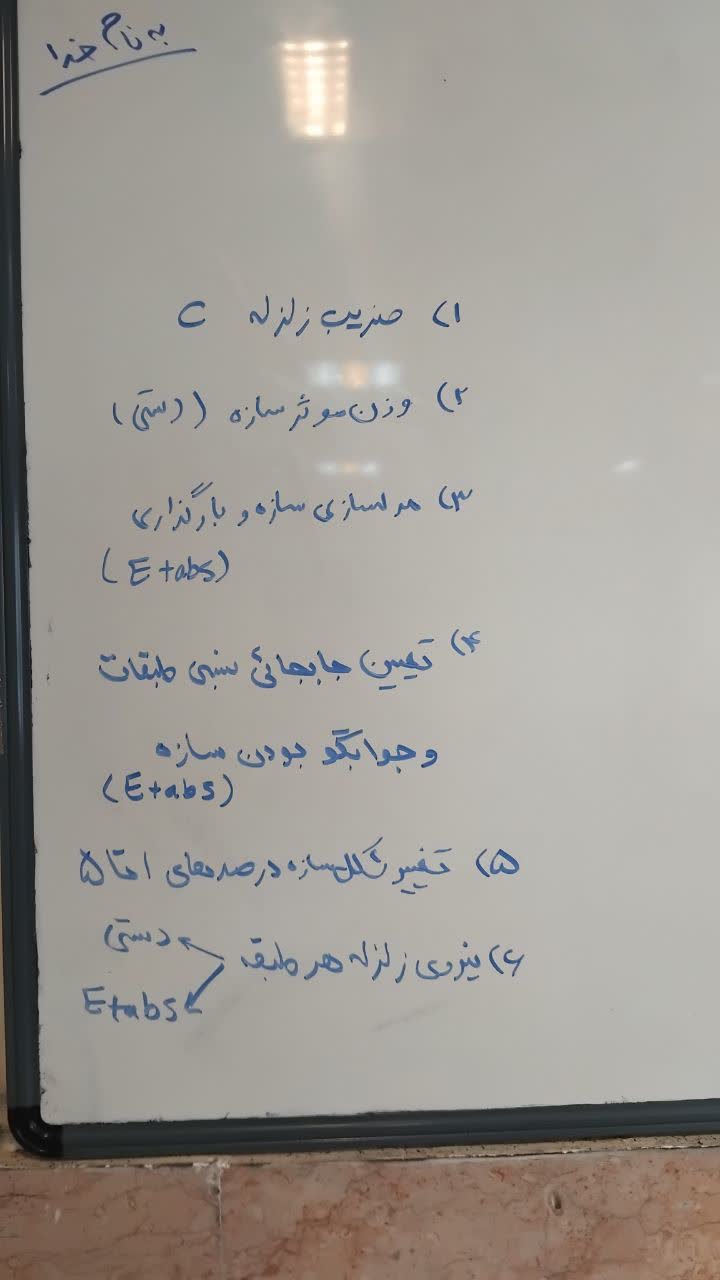 به نام خدا
۱) ضریب زلزله C
۲) وزن موثر سازه (دستی)
۳) مدلسازی سازه و بارگذاری
(Etabs)
۴) تعیین جابجائی نسبی طبقات
و جوابگو بودن سازه
(Etabs)
۵) تغییر شکل سازه در مدهای ۱ تا ۵
۶) نیروی زلزله هر طبقه دستی
Etabs